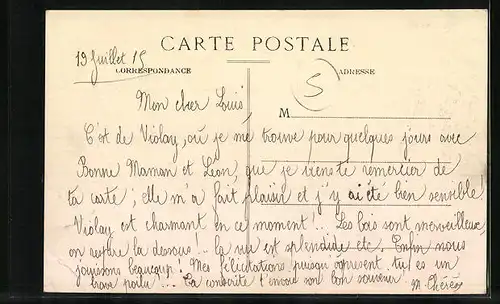 19 Juillet 15
CARTE POSTALE
CORRESPONDANCE
ADRESSE
5
Mon cher Louis
M
C'est de Violay, où je me trouve pour quelques jours avec
Bonne Maman et Léon, que je viens te remercier de
ta carte; elle m'a fait plaisir et j'y ai été bien sensible!
Violay est charmant en ce moment!.. Les bois sont merveilleux,
on respire là dessous... la vue est splendide etc. Enfin nous
jouissons beaucoup! Mes félicitations puisqu'à présent tu es un
brave poilu!... Ta t'envoie son bon souvenir. M.